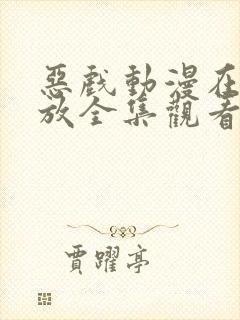 惡戲動漫在
放全集觀看
賈躍亭